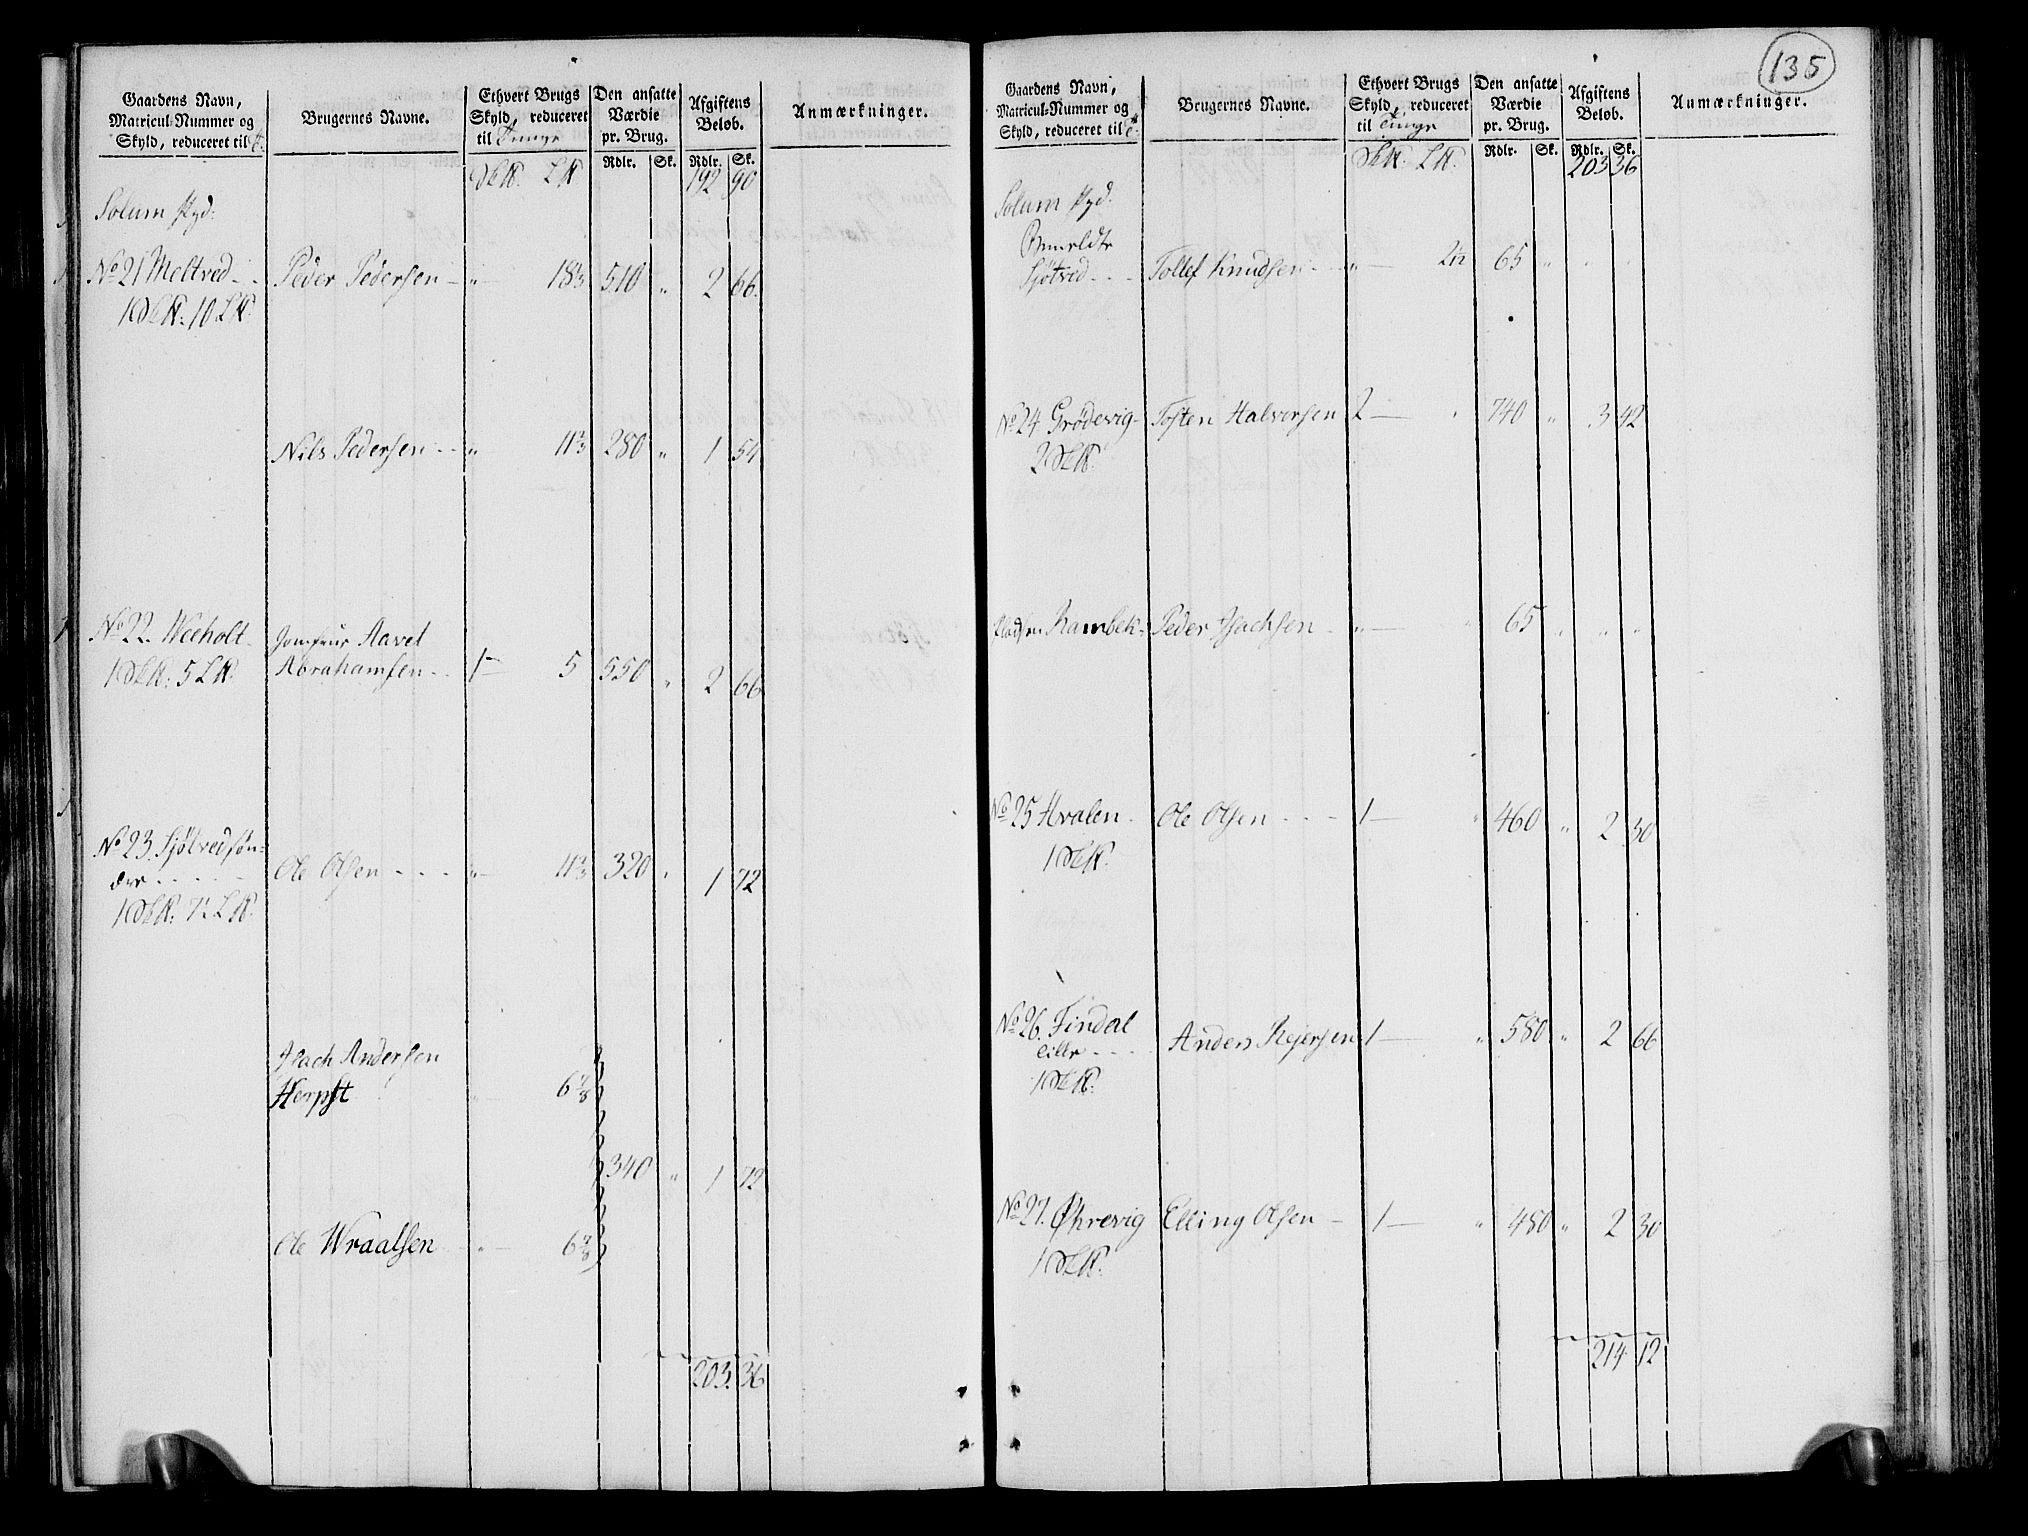 135
Gaardens Navn, Matricul-Nummer og Skyld, reduceret til T. | Brugernes Navne. | Ethvert Brugs Skyld, reduceret til Tunge | Den ansatte Værdie pr. Brug. | Afgiftens Beløb. | Anmærkninger.
Rdlr. Sk. Rdlr. Sk.
192 90
Solum skyd:
No 21 Meltved - - Peder Pedersen - „ 18⅓ 510 „ 2 66.
1 10
Nils Pedersen - - „ 11⅔ 280 „ 1 54
No 22. Weeholt Jomfrue Aavet
1 5 Abrahamsen - - 1 - 5 550 „ 2 66
No 23. Sjötvedsøn=
dre - - - - Ole Olsen - - - „ 11⅔ 320 „ 1 72
1 7½
Isach Andersen
Herpst „ 6⅞
340 „ 1 72
Ole Wraalsen „ 6⅞
203. 36
Gaardens Navn, Matricul-Nummer og Skyld, reduceret til T. | Brugernes Navne. | Ethvert Brugs Skyld, reduceret til Tunge | Den ansatte Værdie pr. Brug. | Afgiftens Beløb. | Anmærkninger.
Rdlr. Sk. Rdlr. Sk.
203 36
Solum skyd:
Sjötved - - - Tollef Knudsen - - „ 2½ 65 „ „ „
No 24 Grödevig - Tosten Halvorsen 2 - „ 740 „ 3 42
2
Pladsen Rambek - Peder Isachsen - „ „ 65 „ „ „
No 25 Hvalen - Ole Olsen - - - 1 - „ 460 „ 2 30
1
No 26. Findal
lille - - - Anders Rejersen 1 - „ 580 „ 2 66
1
No 27. Øhrevig Elling Olsen - 1 - „ 480 „ 2 30
1
214 12